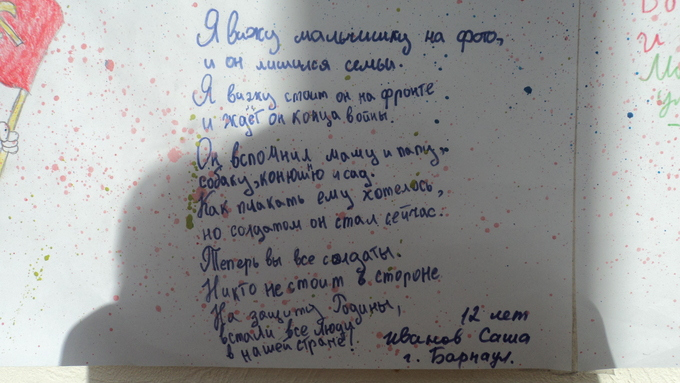 Я вижу мальчишку на фото,
и он лишился семьи.
Я вижу стоит он на фронте
и ждёт он конца войны.
Он вспомнил маму и папу,
собаку, конюшню и сад.
Как плакать ему хотелось,
но солдатом он стал сейчас.
Теперь вы все солдаты.
Никто не стоит в стороне
На защиту Родины,
встали все люди
в нашей стране!
12 лет
Иванов Саша
г. Барнаул.
и